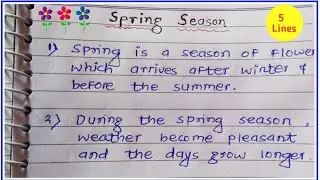 Spring Season
5
Lines
1) Spring is a season of flower
which arrives after winter &
before the summer.
2) During the spring season,
weather become pleasant
and the days grow longer.